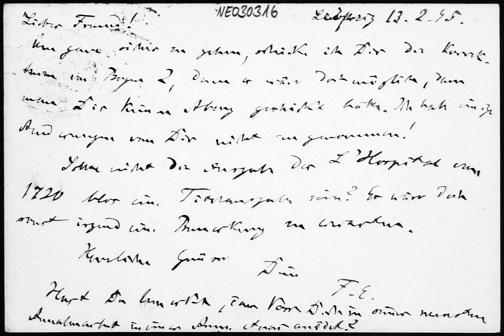 NE030316
Leipzig 13.2.45.
Lieber Freund!
Um ganz sicher zu gehen, schicke ich Dir die Korrek-
turen im Bogen 2, denn es wäre doch möglich, dass
man Dir keinen Abzug geschickt hätte. Ich habe einige
Änderungen von Dir nicht angenommen!
Sollte nicht die Ausgabe des L'Hospital von
1720 blos eine Titelausgabe sein? Es wäre doch
sonst irgend eine Bemerkung zu erwarten.
Herzliche Grüsse
Dein
F. E.
Hast Du bemerkt, dass Voss Dich in seiner neuesten